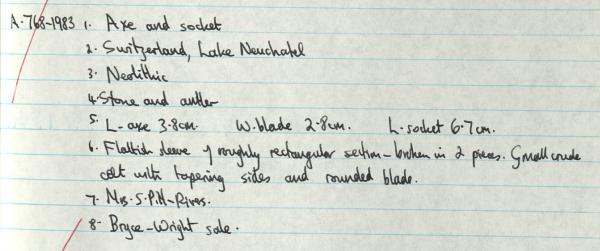 A.768-1983 1. Axe and socket
2. Switzerland, Lake Neuchatel
3. Neolithic
4. Stone and antler
5. L-axe 3.8cm. W.blade 2.8cm. L.socket 6.7cm.
6. Flattish sleeve of roughly rectangular section - broken in 2 pieces. Small crude
celt with tapering sides and rounded blade.
7. Mrs. S. Pitt-Rivers.
8- Bryce-Wright sale.